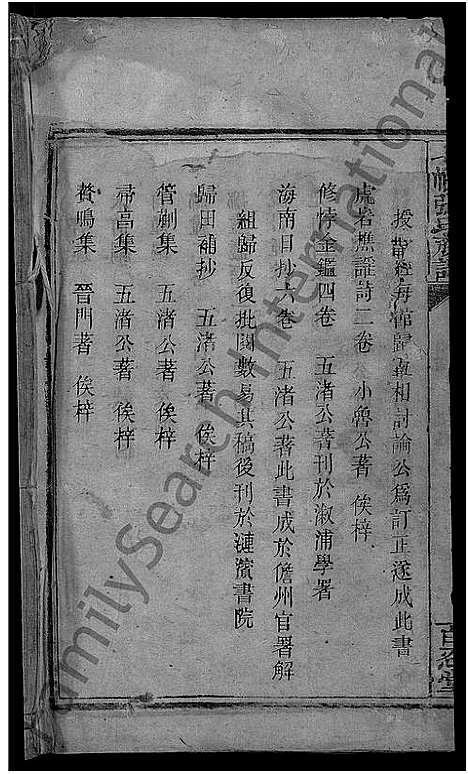 授帶經每館歸輒相討論公爲訂正遂成此書
虎岩樵謳詩二卷 小魯公著 俟梓
修悖金鑑四卷 五渚公著刊於溆浦學署
海南日抄六卷 五渚公著此書成於儋州官署解
組歸反復批閱數易其稿後刊於漣濱書院
歸田補抄 五渚公著 俟梓
管蒯集 五渚公著 俟梓
帚享集 五渚公著 俟梓
賛鳴集 晉門著 俟梓
張氏族譜
百忍堂
FamilySearch International